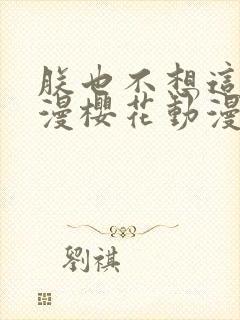 朕也不想這
漫櫻花動漫
劉祺